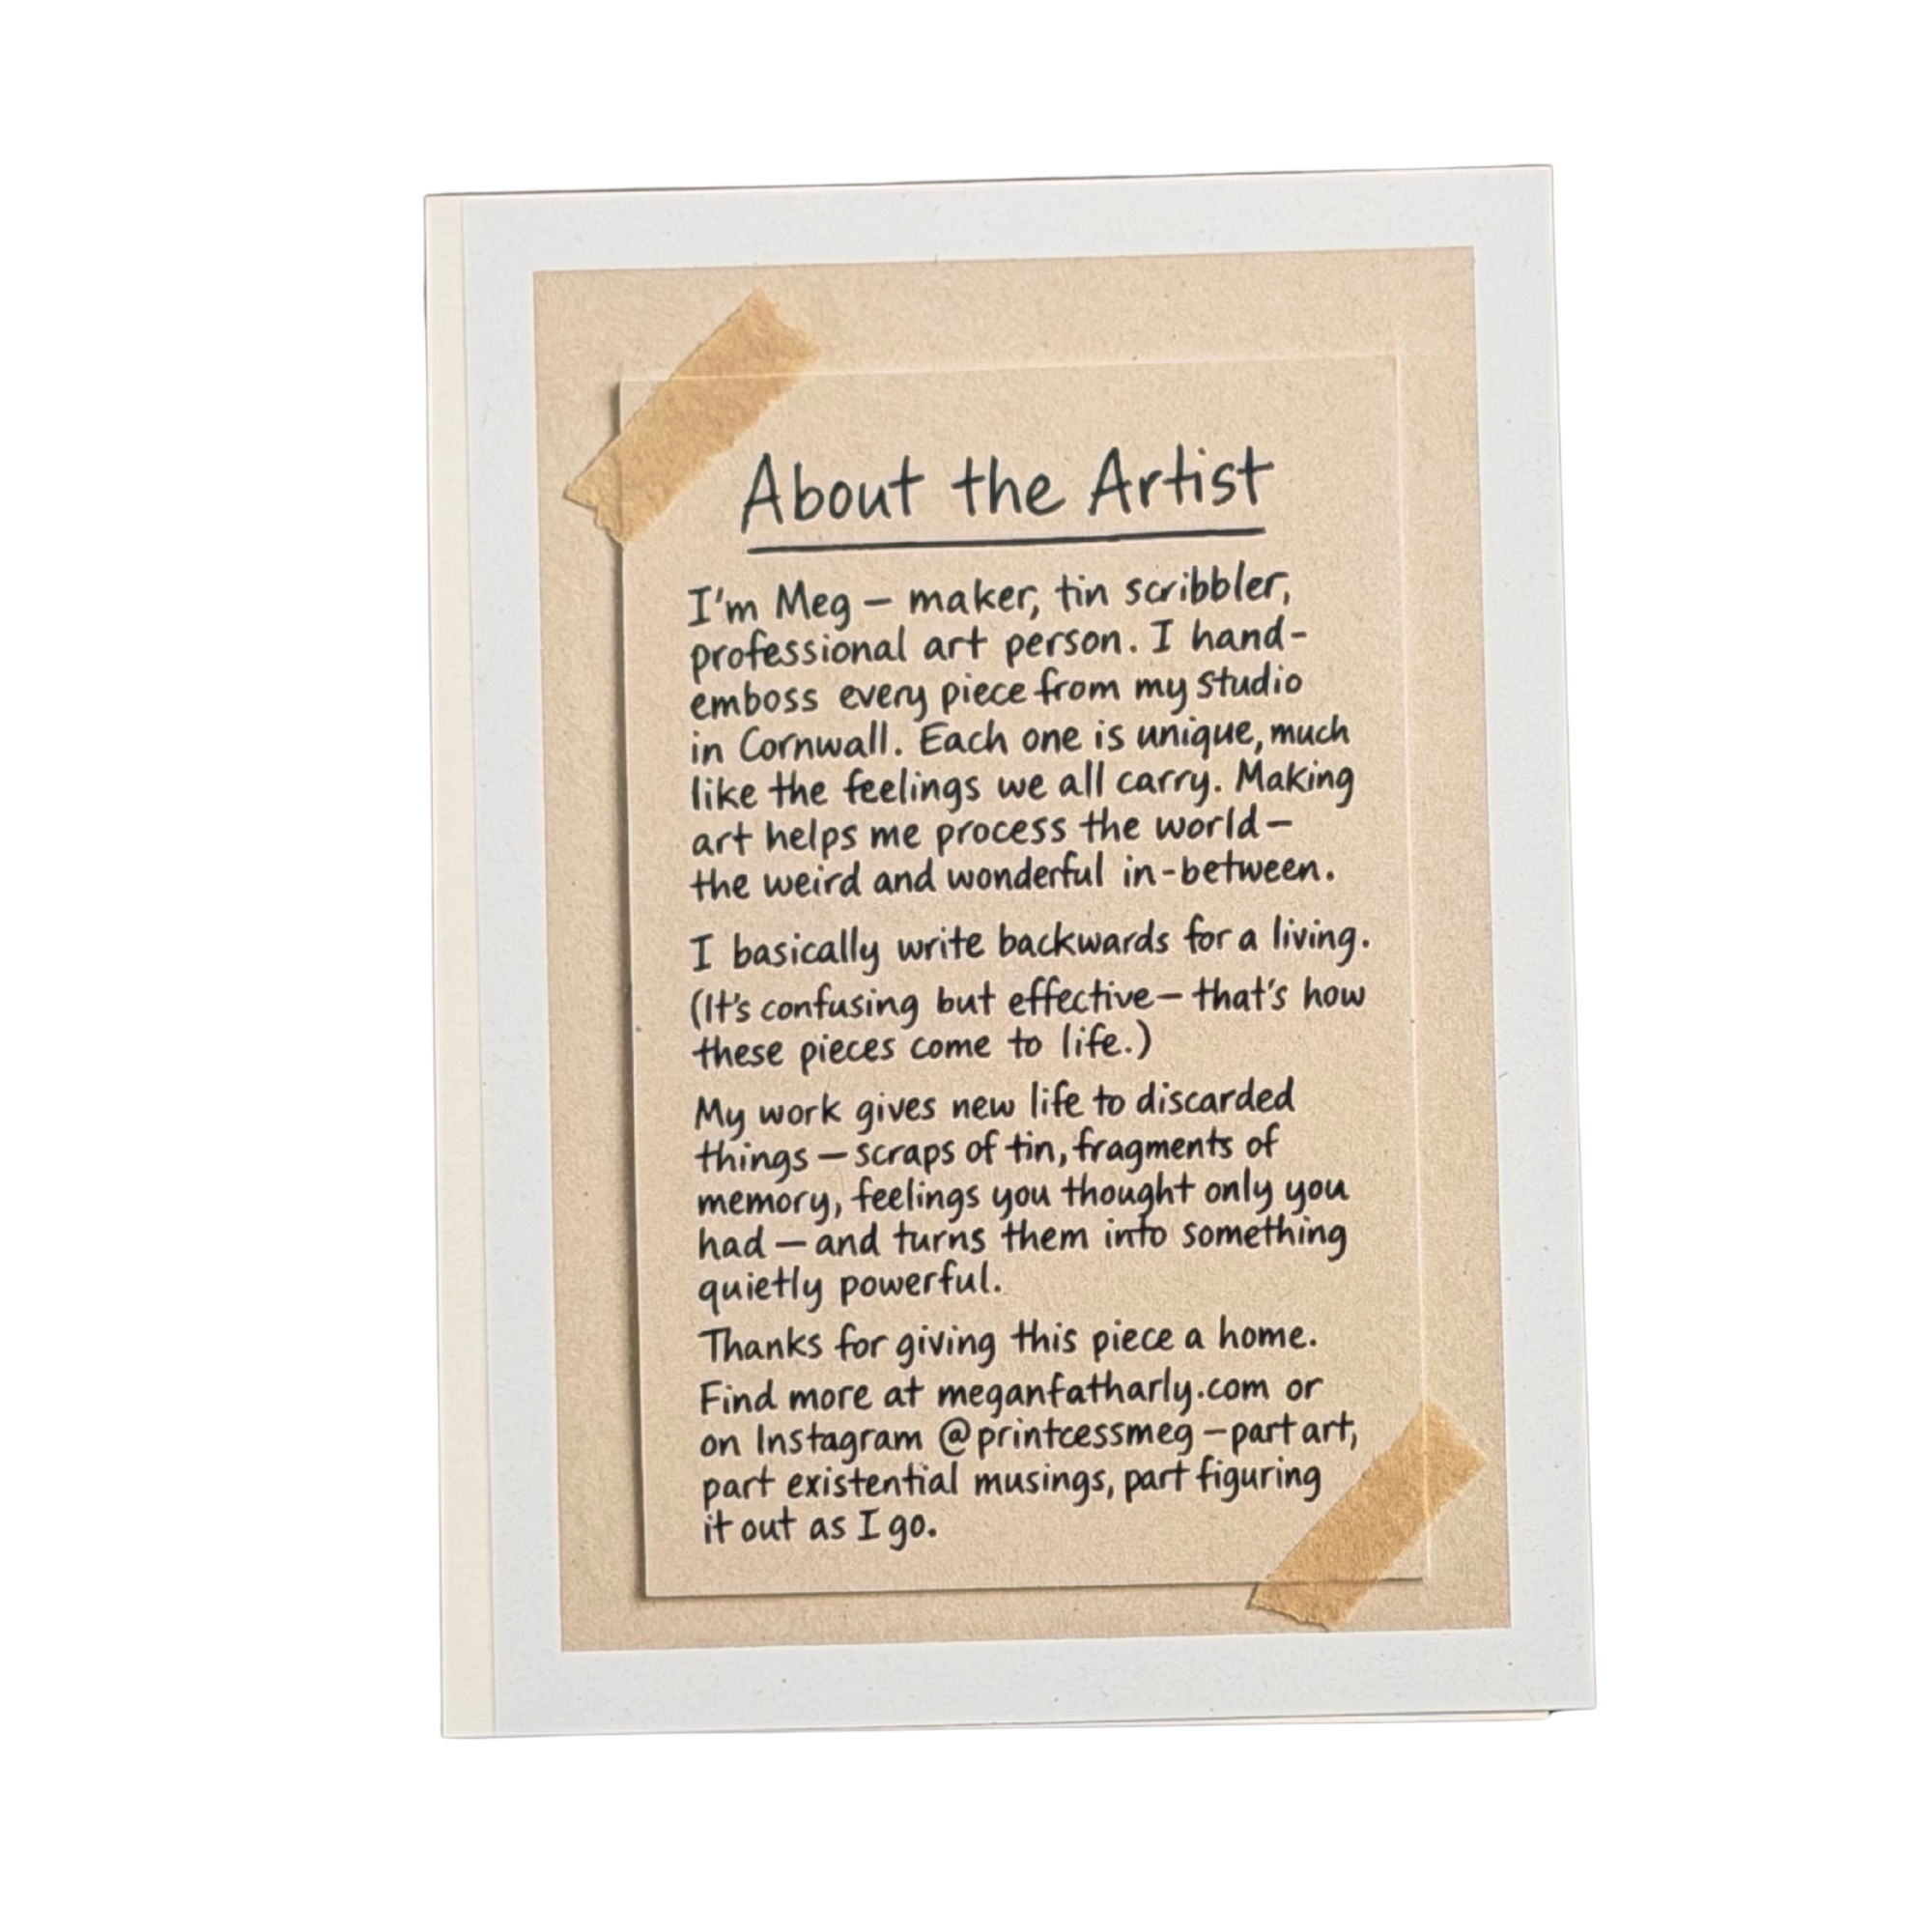 About the Artist
I'm Meg – maker, tin scribbler,
professional art person. I hand-
emboss every piece from my studio
in Cornwall. Each one is unique, much
like the feelings we all carry. Making
art helps me process the world –
the weird and wonderful in-between.
I basically write backwards for a living.
(It's confusing but effective – that's how
these pieces come to life.)
My work gives new life to discarded
things – scraps of tin, fragments of
memory, feelings you thought only you
had – and turns them into something
quietly powerful.
Thanks for giving this piece a home.
Find more at meganfatharly.com or
on Instagram @printcessmeg – part art,
part existential musings, part figuring
it out as I go.